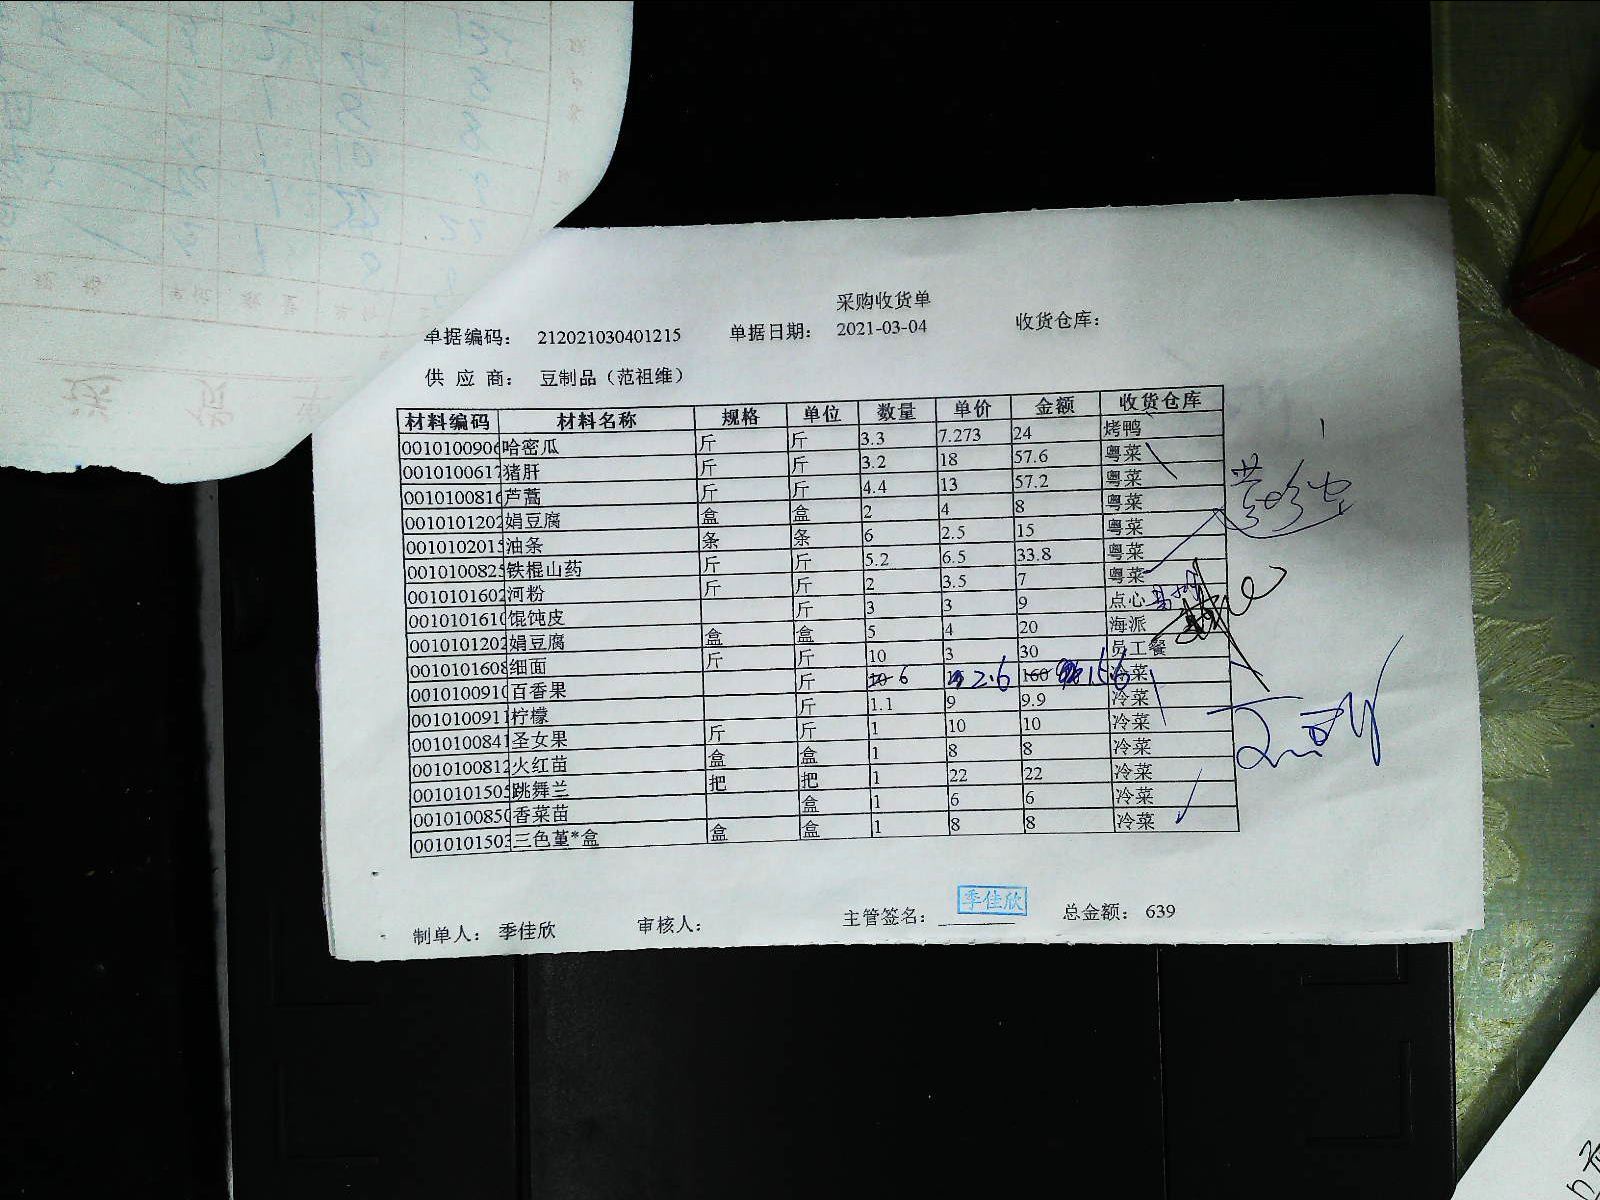 采购收货单
单据编码： 212021030401215 单据日期： 2021-03-04 收货仓库：
供 应 商： 豆制品（范祖维）
材料编码 材料名称 规格 单位 数量 单价 金额 收货仓库
0010100906 哈密瓜 斤 斤 3.3 7.273 24 烤鸭
0010100617 猪肝 斤 斤 3.2 18 57.6 粤菜
0010100816 芦蒿 斤 斤 4.4 13 57.2 粤菜
0010101202 娟豆腐 盒 盒 2 4 8 粤菜
0010102015 油条 条 条 6 2.5 15 粤菜
0010100825 铁棍山药 斤 斤 5.2 6.5 33.8 粤菜
0010101602 河粉 斤 斤 2 3.5 7 粤菜
0010101610 馄饨皮 斤 3 3 9 点心
0010101202 娟豆腐 盒 盒 5 4 20 海派
0010101608 细面 斤 斤 10 3 30 员工餐
0010100910 百香果 斤 6 2.6 160 156 冷菜
0010100911 柠檬 斤 1.1 9 9.9 冷菜
0010100841 圣女果 斤 斤 1 10 10 冷菜
0010100812 火红苗 盒 盒 1 8 8 冷菜
0010101505 跳舞兰 把 把 1 22 22 冷菜
0010100850 香菜苗 盒 1 6 6 冷菜
0010101503 三色堇*盒 盒 盒 1 8 8 冷菜
制单人： 季佳欣 审核人： 主管签名： 季佳欣 总金额： 639